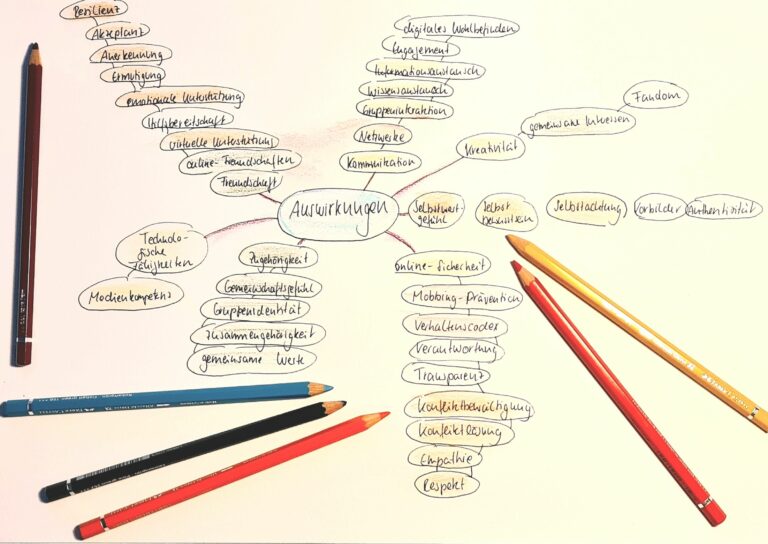 Resilienz
Akzeptanz
Anerkennung
Ermutigung
emotionale Unterstützung
Hilfsbereitschaft
virtuelle Unterstützung
online-Freundschaften
Freundschaft
digitales Wohlbefinden
Engagement
Informationsaustausch
Wissensaustausch
Gruppeninteraktion
Netzwerke
Kommunikation
Kreativität
gemeinsame Interessen
Fandom
Auswirkungen
Selbstwert-
gefühl
Selbst
bewusstsein
Selbstachtung
Vorbilder
Authentizität
Technolo-
gische
Fähigkeiten
Medienkompetenz
Zugehörigkeit
Gemeinschaftsgefühl
Gruppenidentität
Zusammengehörigkeit
gemeinsame Werte
online-Sicherheit
Mobbing-Prävention
Verhaltenscodex
Verantwortung
Transparenz
Konfliktbewältigung
Konfliktlösung
Empathie
Respekt